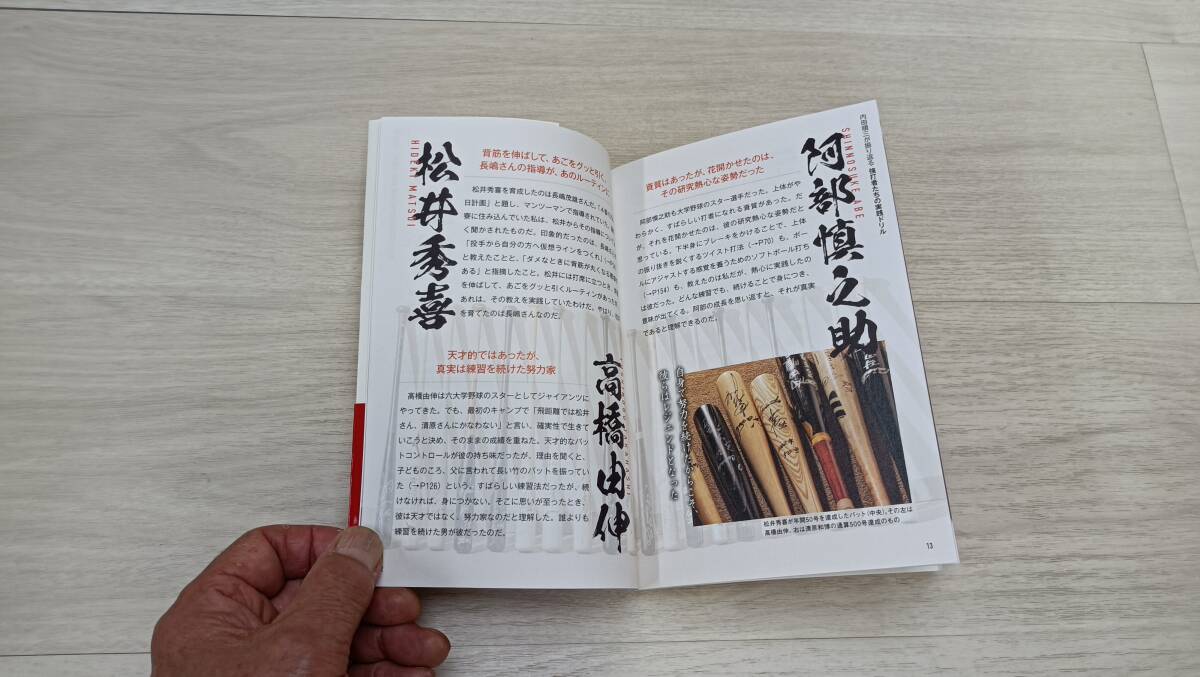 松井秀喜
HIDEKI MATSUI
背筋を伸ばして、あごをグッと引く。
長嶋さんの指導が、あのルーティンに
松井秀喜を育成したのは長嶋茂雄さんだ。
日計画」と題し、マンツーマンで指導されていた。
寮に住み込んでいた私は、松井からその指導につい
く聞かされたものだ。印象的だったのは、長嶋
「投手から自分の方へ仮想ラインをつくれ」
と教えたことと、「ダメなときに背筋が丸くなる
ある」と指摘したこと。松井には打席に立つとき、
を伸ばして、あごをグッと引くルーティンがあった
あれは、その教えを実践していたわけだ。やはり、
を育てたのは長嶋さんなのだ。
天才的ではあったが、
真実は練習を続けた努力家
高橋由伸
高橋由伸は六大学野球のスターとしてジャイアンツに
やってきた。でも、最初のキャンプで「飛距離では松井
さん、清原さんにかなわない」と言い、確実性で生きて
いこうと決め、そのままの成績を重ねた。天才的なバッ
トコントロールが彼の持ち味だったが、理由を聞くと、
子どものころ、父に言われて長い竹のバットを振ってい
た（→P126）という。すばらしい練習法だったが、続
けなければ、身につかない。そこに思いが至ったとき、
彼は天才ではなく、努力家なのだと理解した。誰よりも
練習を続けた男が彼だったのだ。
内田順三が振り返る 強打者たちの実践ドリル
阿部慎之助
SHINNOSUKE ABE
資質はあったが、花開かせたのは、
その研究熱心な姿勢だった
阿部慎之助も大学野球のスター選手だった。上体がや
わらかく、すばらしい打者になれる資質があった。だ
が、それを花開かせたのは、彼の研究熱心な姿勢だと
思っている。下半身にブレーキをかけることで、上体
の振り抜きを鋭くするツイスト打法（→P70）も、ボー
ルにアジャストする感覚を養うためのソフトボール打ち
（→P154）も、教えたのは私だが、熱心に実践したの
は彼だった。どんな練習でも、続けることで身につき、
意味が出てくる。阿部の成長を思い返すと、それが真実
であると理解できるのだ。
自身で努力を続けたからこそ、
彼らはレジェンドとなった
松井秀喜が年間50号を達成したバット（中央）。その左は
高橋由伸、右は清原和博の通算500号達成のもの
13